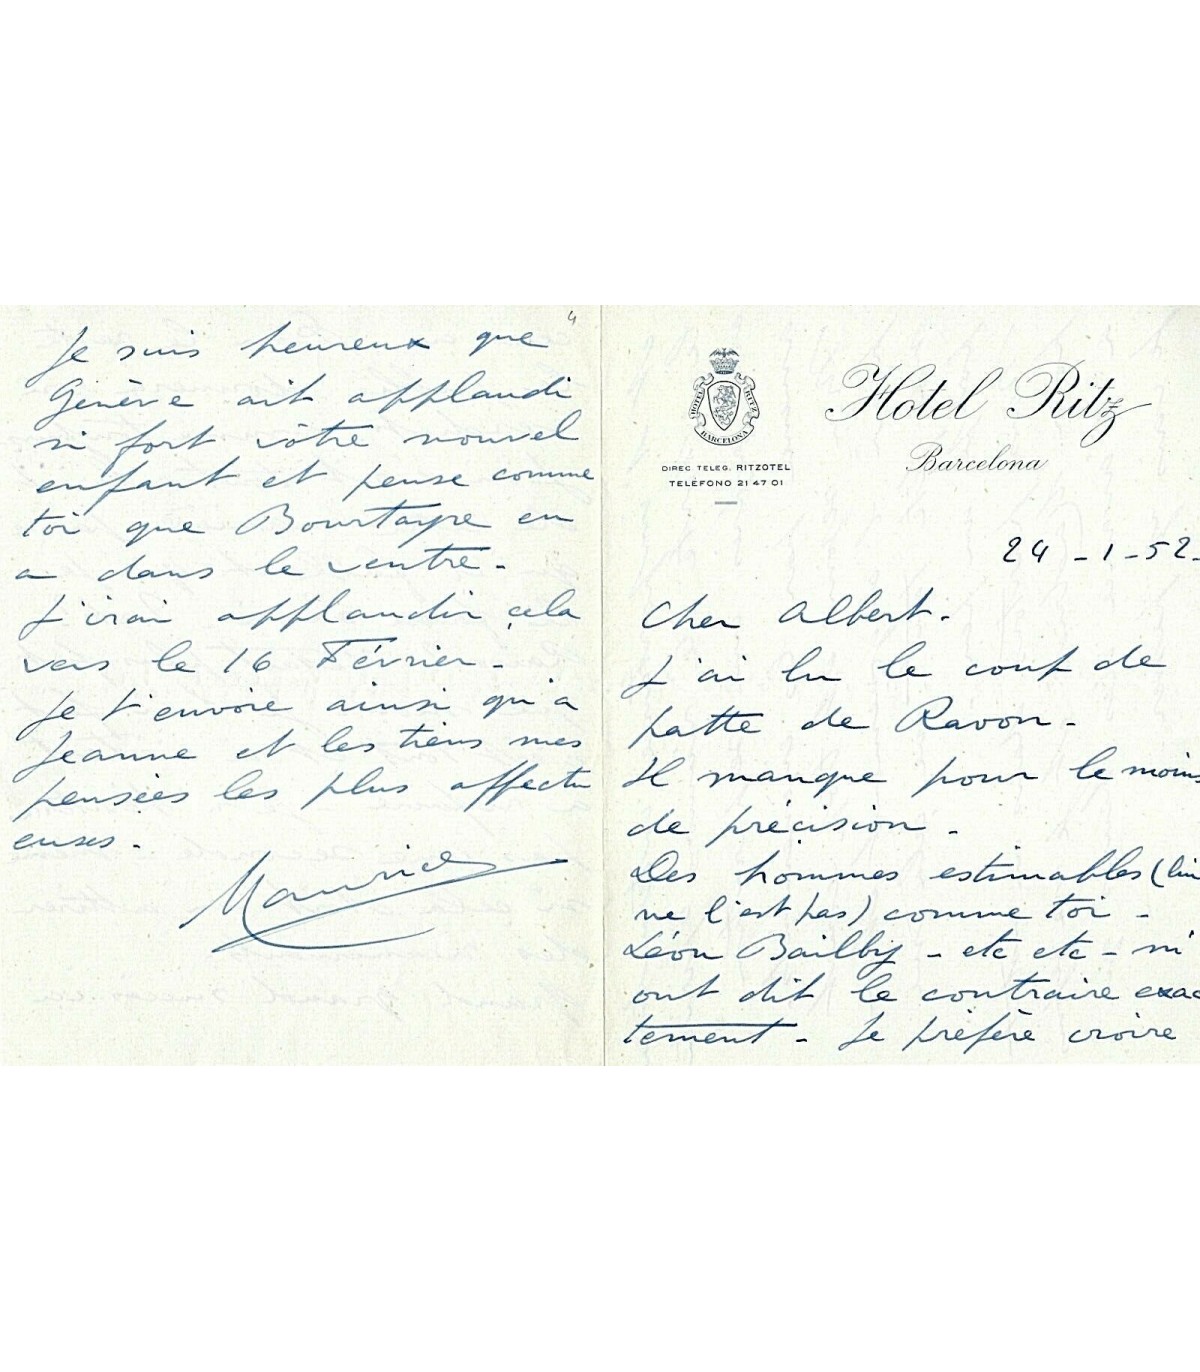 4
Je suis heureux que
Genève ait applaudi
si fort vôtre nouvel
enfant et pense comme
toi que Bourtayre en
a dans le ventre -
J'irai applaudir cela
vers le 16 Février -
Je t'envoie ainsi qu'a
Jeanne et les tiens mes
pensées les plus affectu
euses -
Maurice
HOTEL RITZ
BARCELONA
DIREC TELEG. RITZOTEL
TELÉFONO 21 47 01
Hotel Ritz
Barcelona
24 - 1 - 52 -
Cher Albert -
J'ai lu le coup de
patte de Ravon -
Il manque pour le moins
de précision -
Des hommes estimables (lui
ne l'est pas) comme toi -
Léon Bailby - etc etc - m'
ont dit le contraire exac
tement - Je préfère croire